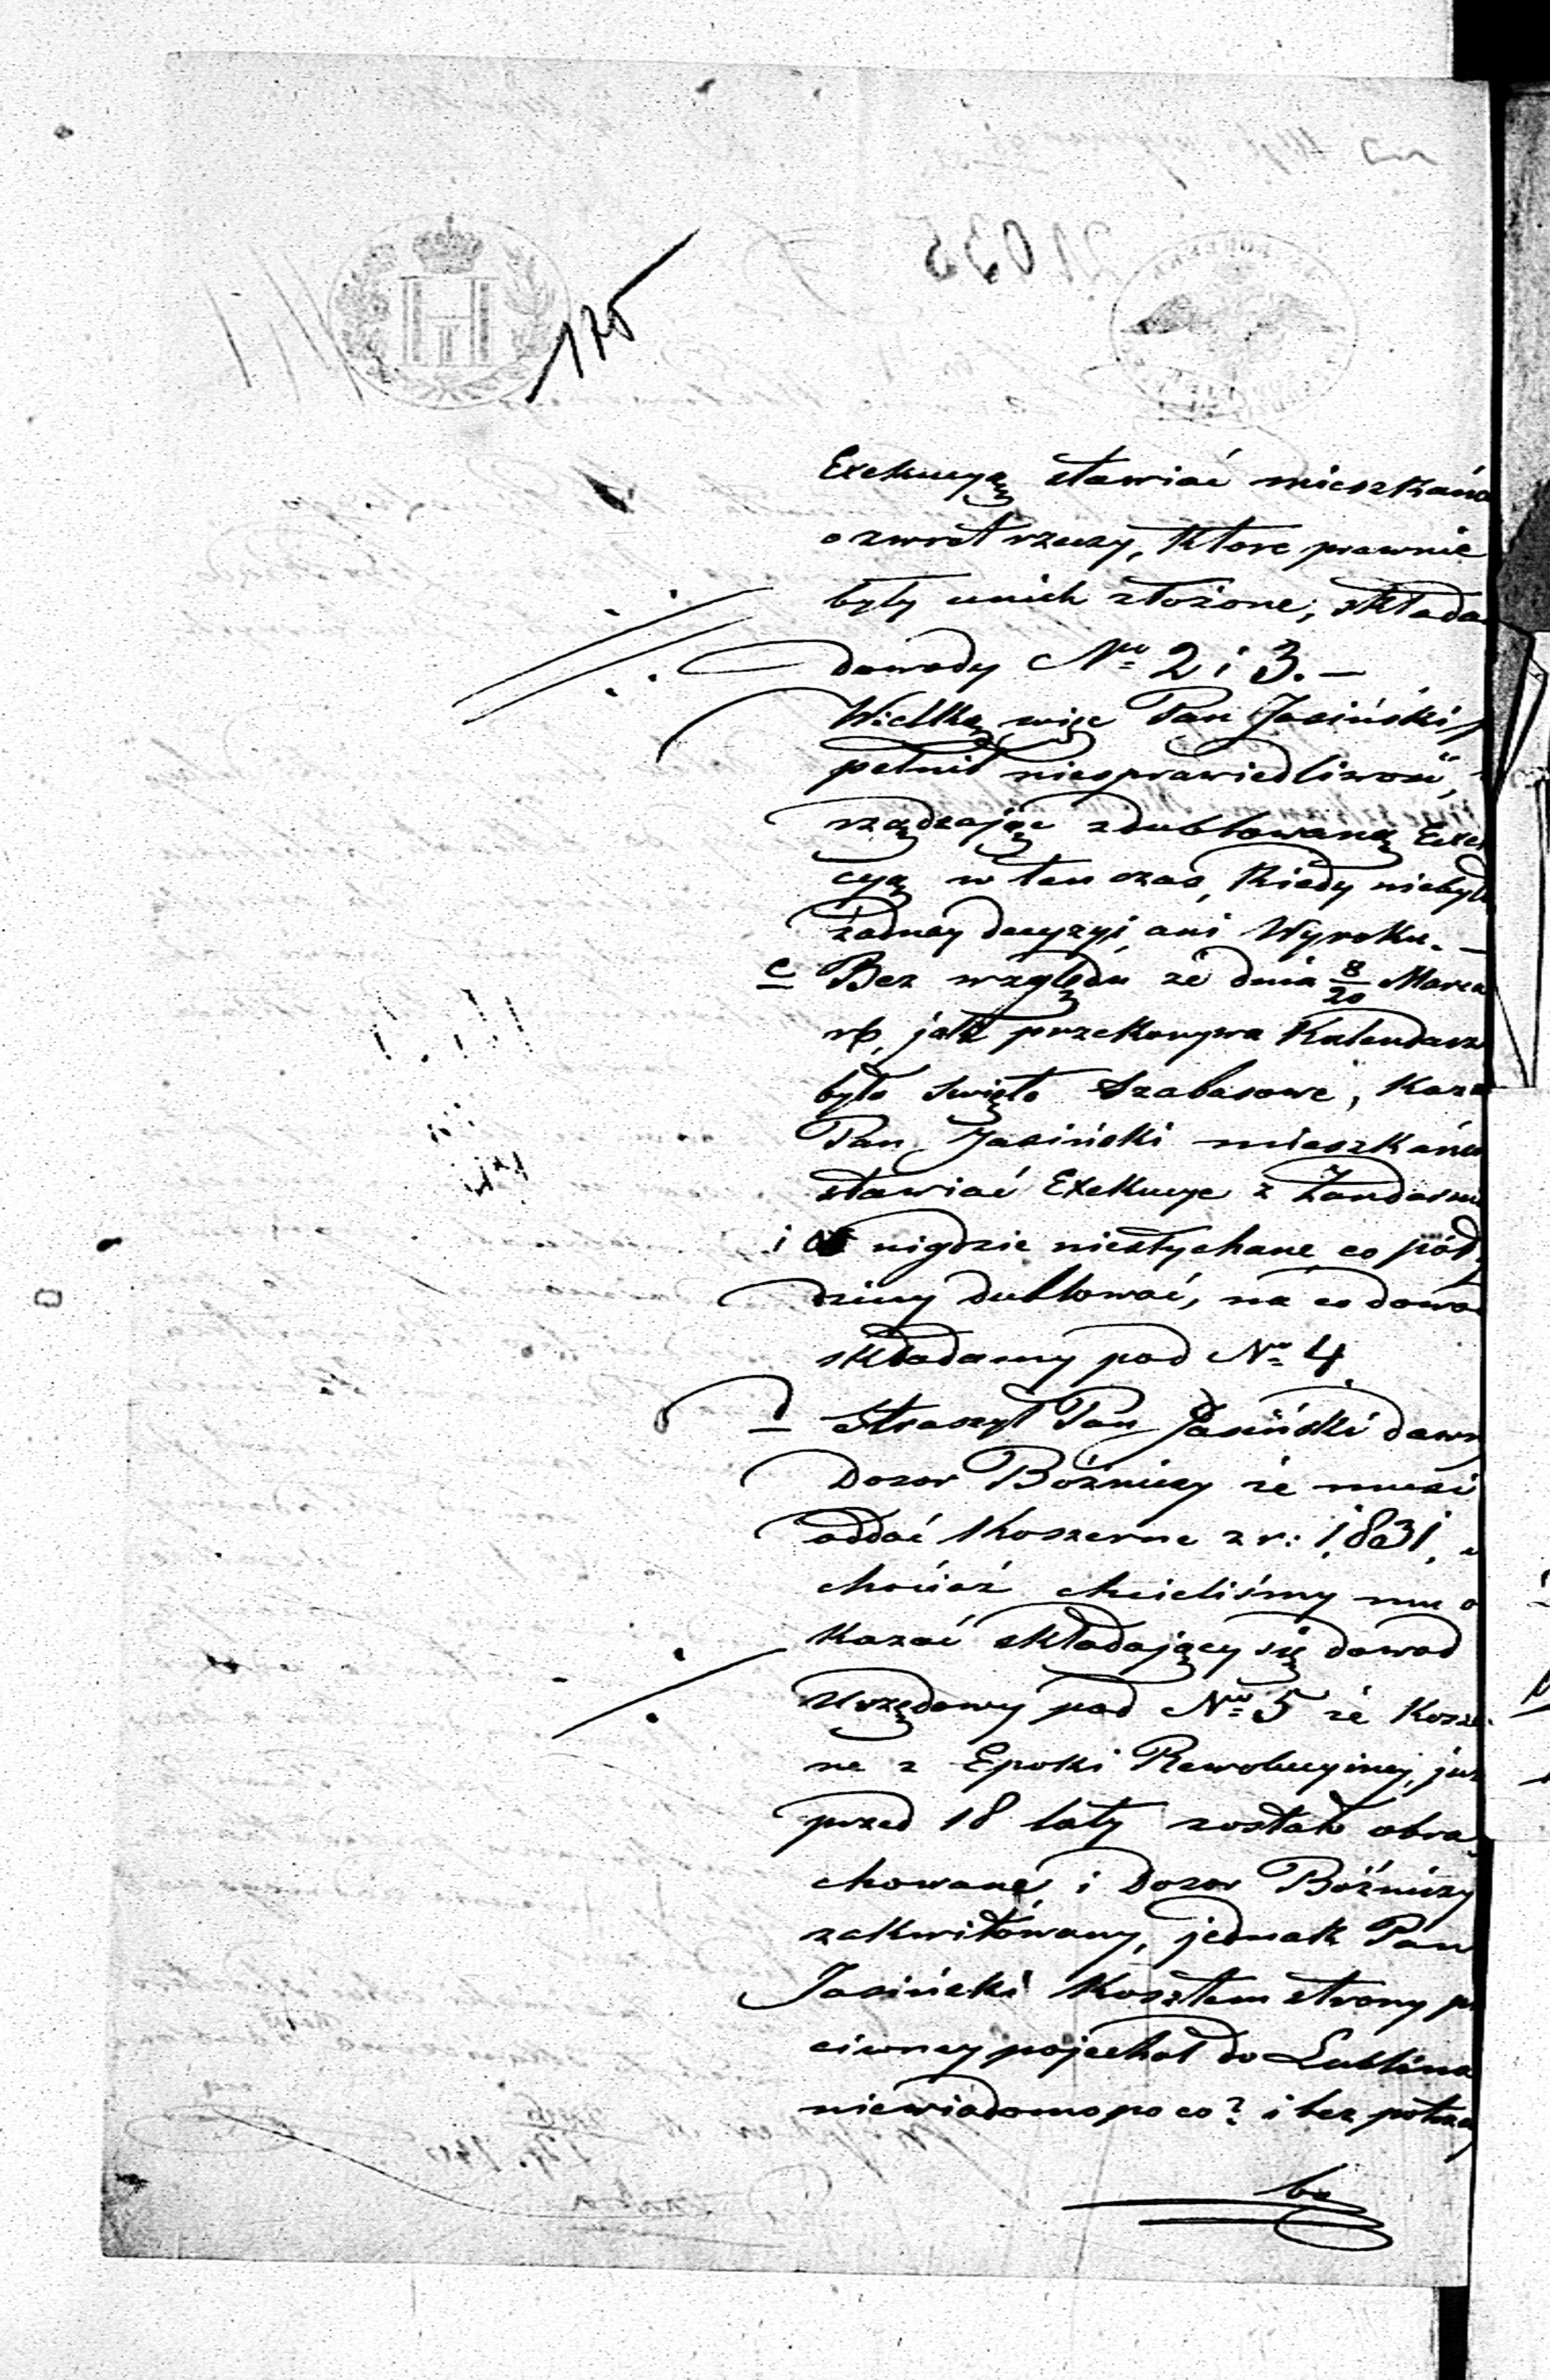 175
Exekucyą stawiać mieszkańc
o zwrot rzeczy, które prawnie
były unich złożone, składa
dowody Nro 2 i 3. —
Wielką więc Pan Jasiński p
pełnił niesprawiedliwość,
rządzając zdublowaną Exe
cyą w ten czas, kiedy niebyło
żadney decyzyi ani Wyroku. —
c Bez względu że dnia 8/20 Marca
rb, jak przekonywa Kalendarz
było święto Szabasowe, kaza
Pan Jasiński mieszkańc
stawiać Exekucye z Żandarm
i nigdzie niesłychane co pół
dziny dublować, na co dowo
składamy pod Nro 4
d Straszył Pan Jasiński dawn
Dozor Bóźniczy że musi
oddać Koszerne z r: 1831,
chociaż chcieliśmy mu o
kazać składający się dowod
Urzędowy pod Nro 5 że Kosze
ne z Epoki Rewolucyiney, już
przed 18 laty zostało obra
chowane i Dozor Bóźniczy
zakwitówany, jednak Pan
Jasiński Kosztem strony p
ciwney pojechał do Lublina
niewiadomo po co? i bez potrze
be